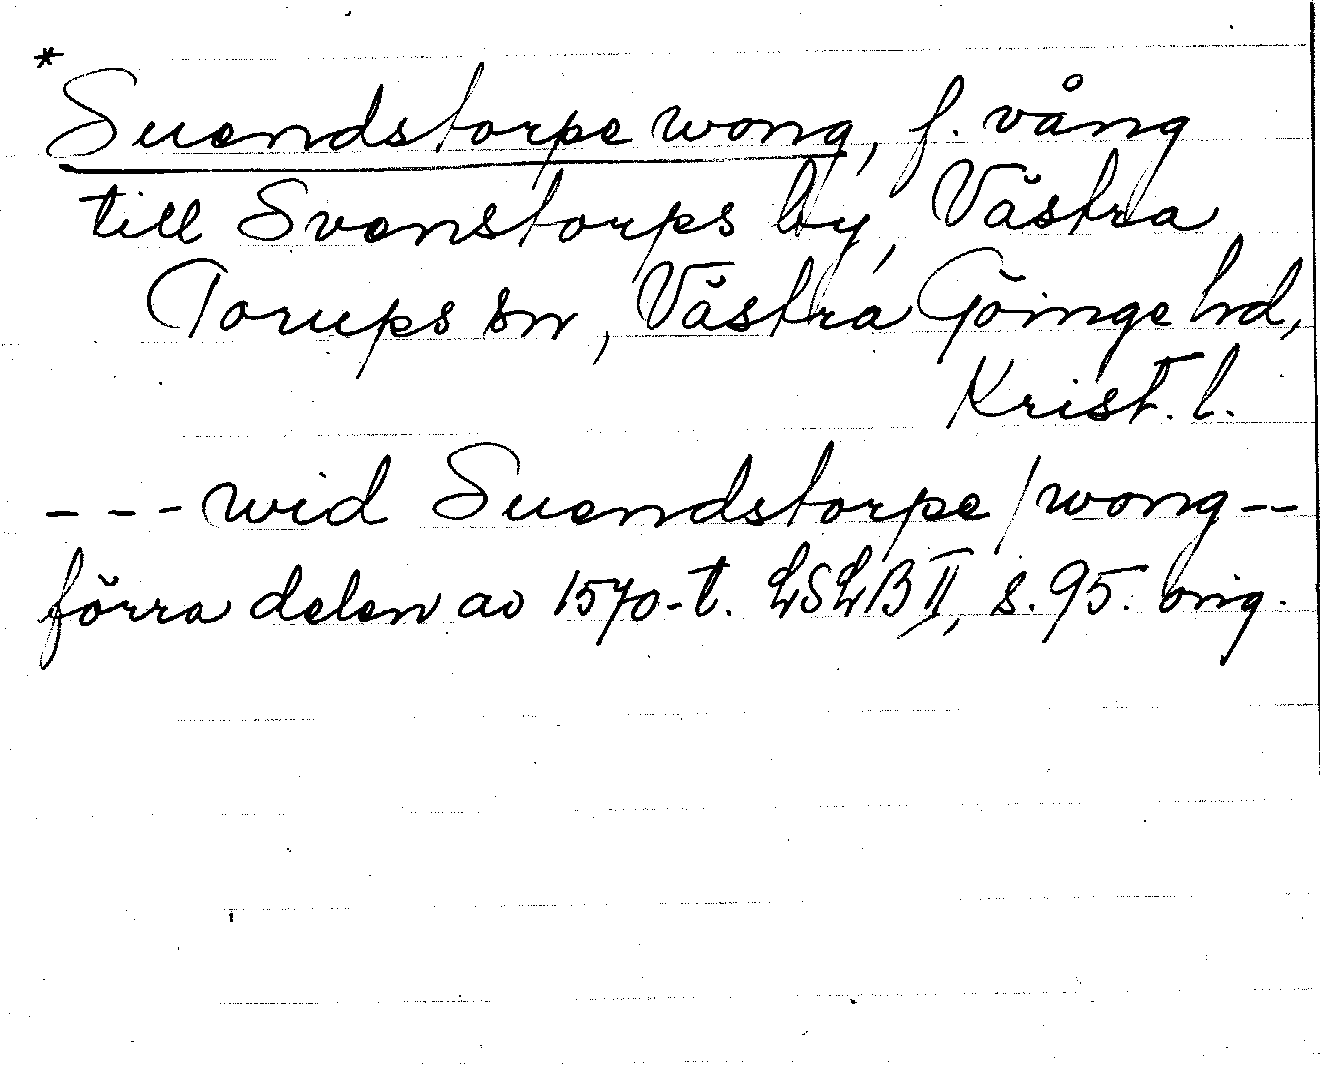 * Suendstorpe wong, f. vång
till Svenstorps by, Västra
Torups sn, Västra Göinge hd,
Krist. l.
--- wid Suendstorpe / wong --
förra delen av 1570-t. LSLB II, s. 95. orig.